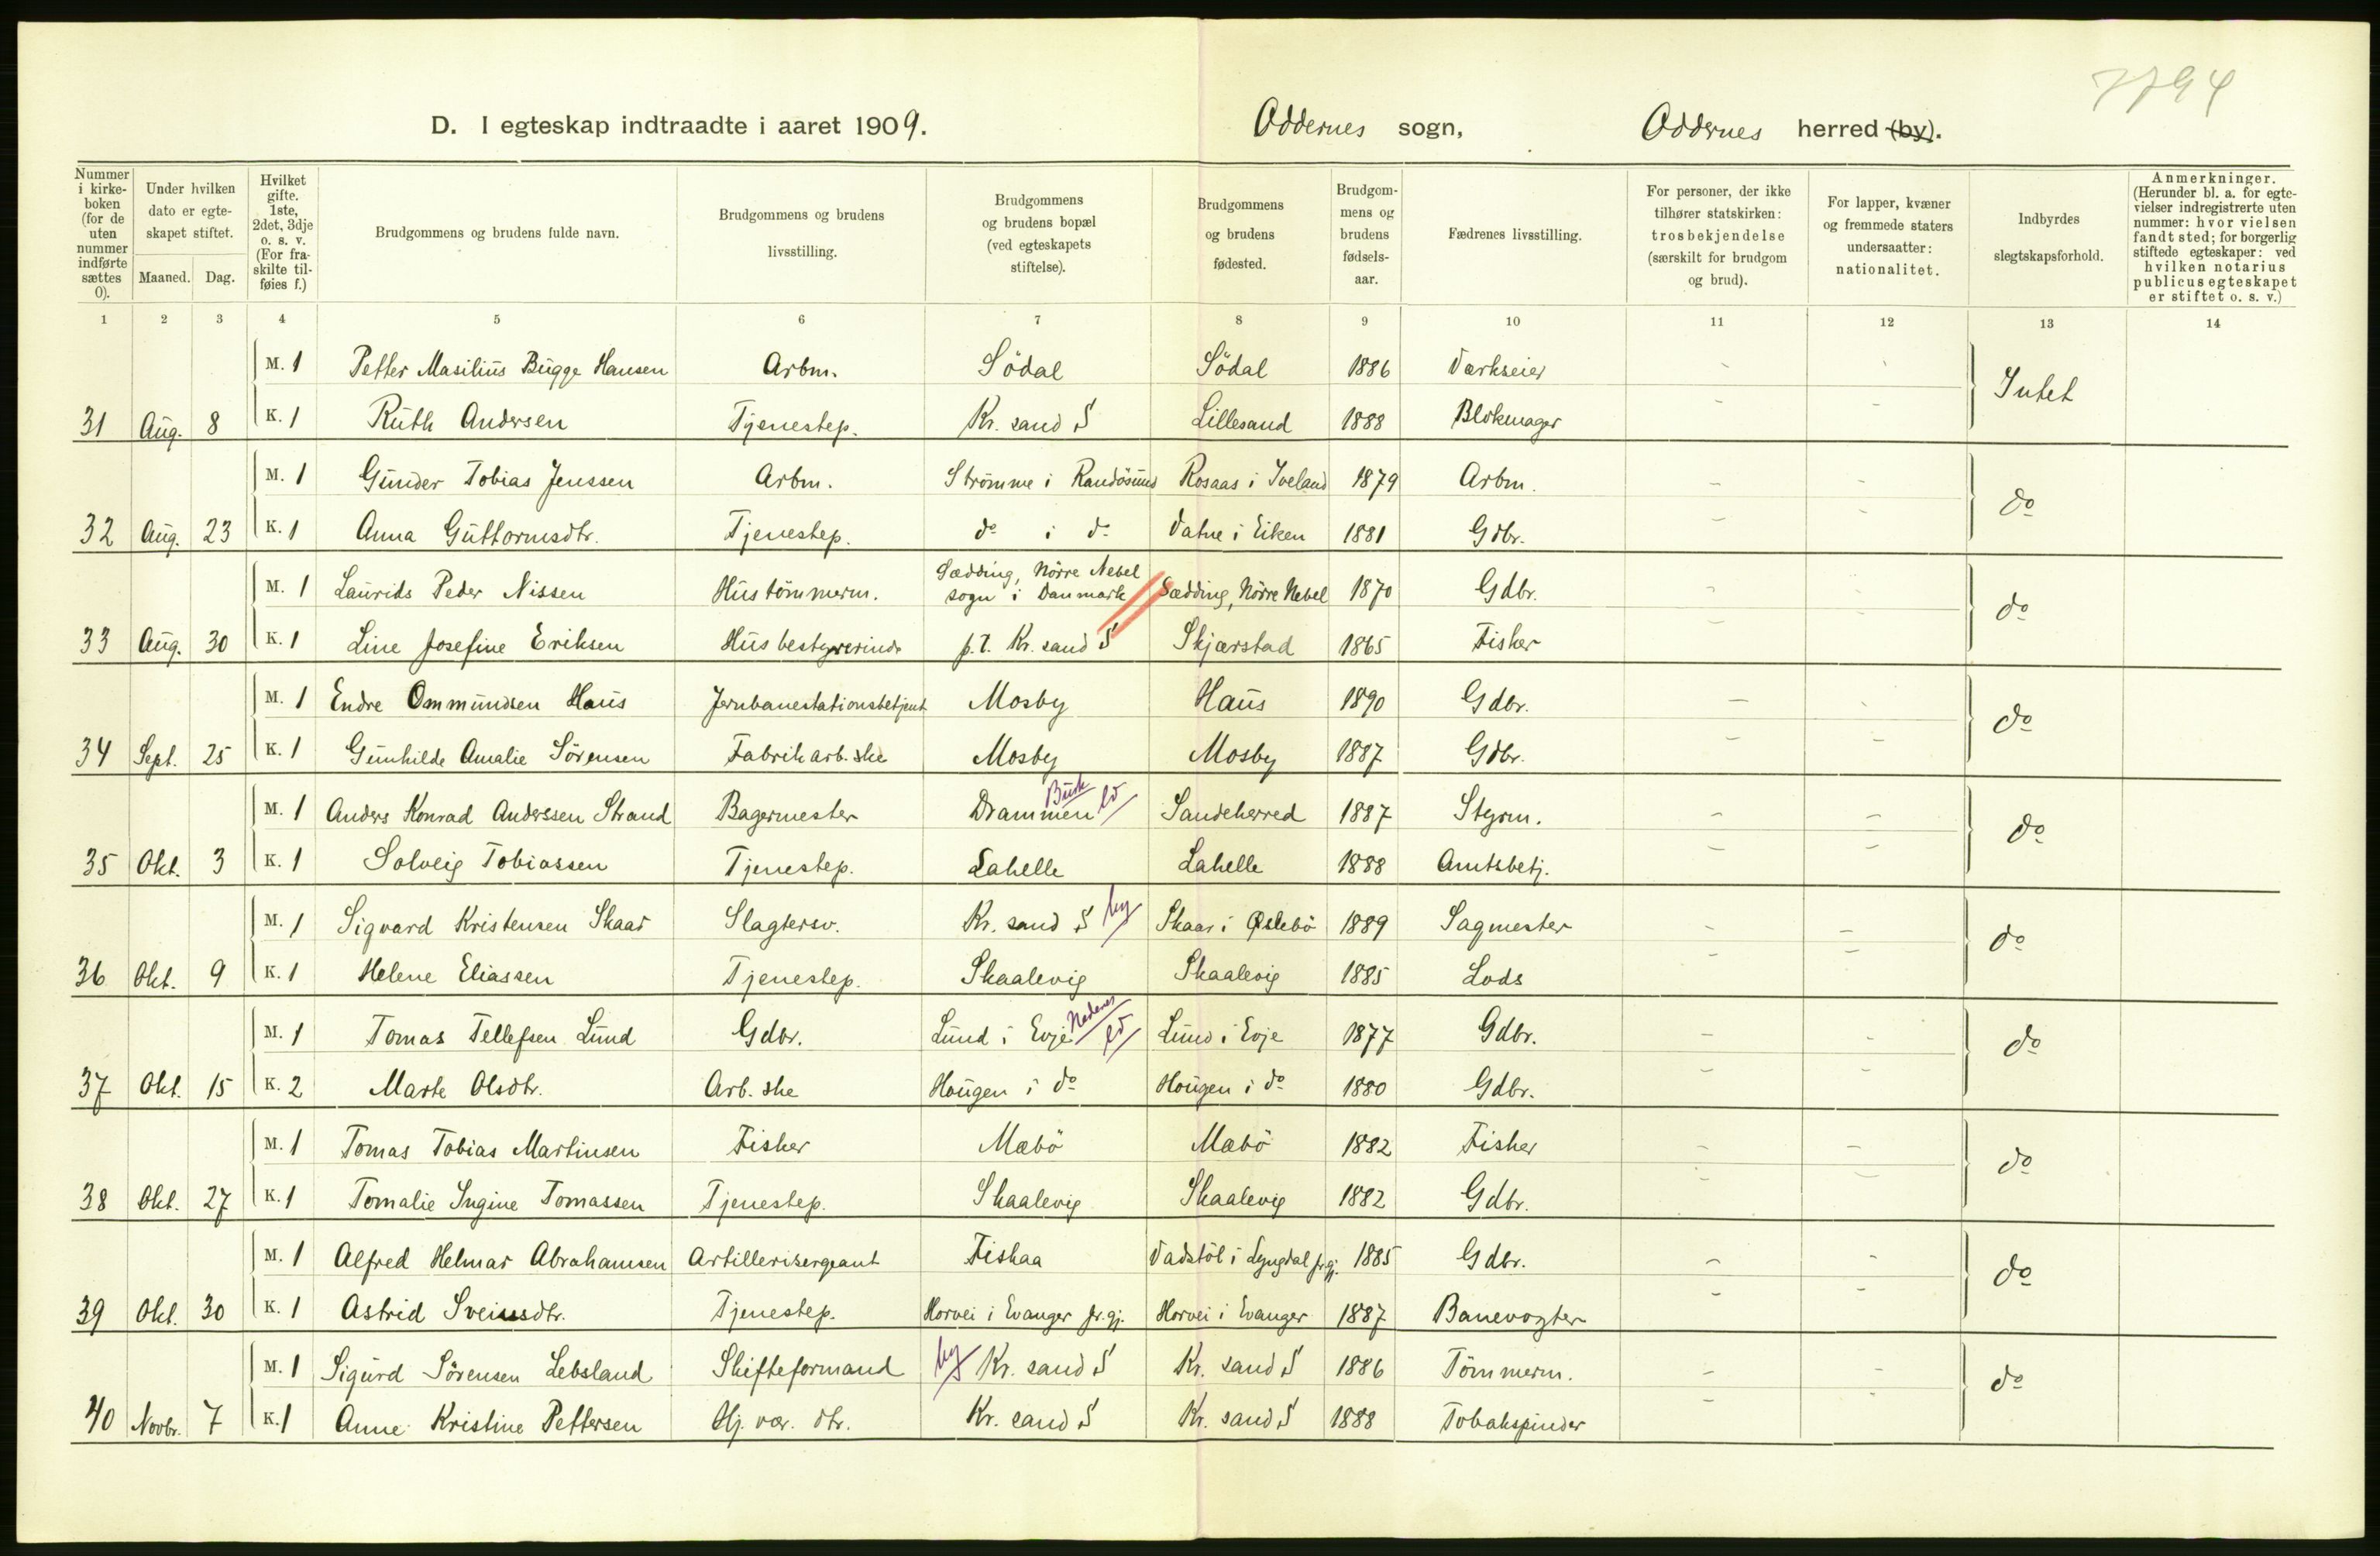 7794
D. I egteskap indtraadte i aaret 1909. Oddernes sogn, Oddernes herred (by).
Nummer i kirkeboken (for de uten nummer indførte sættes 0).
Under hvilken dato er egteskapet stiftet.
Maaned. Dag.
Hvilket gifte. 1ste, 2det, 3dje o. s. v. (For fraskilte tilføies f.)
Brudgommens og brudens fulde navn.
Brudgommens og brudens livsstilling.
Brudgommens og brudens bopæl (ved egteskapets stiftelse).
Brudgommens og brudens fødested.
Brudgommens og brudens fødselsaar.
Fædrenes livsstilling.
For personer, der ikke tilhører statskirken: trosbekjendelse (særskilt for brudgom og brud).
For lapper, kvæner og fremmede staters undersaatter: nationalitet.
Indbyrdes slegtskapsforhold.
Anmerkninger. (Herunder bl. a. for egtevielser indregistrerte uten nummer: hvor vielsen fandt sted; for borgerlig stiftede egteskaper: ved hvilken notarius publicus egteskapet er stiftet o. s. v.)
1 2 3 4 5 6 7 8 9 10 11 12 13 14
M. 1 Petter Masilius Bugge Hansen Arbm. Södal Södal 1886 Værkseier - - Intet
31 Aug. 8 K. 1 Ruth Andersen Tjenestep. Kr. sand S Lillesand 1888 Blokmager - -
M. 1 Gunder Tobias Jenssen Arbm. Strömme i Randösund Rosaas i Iveland 1879 Arbm. - - do
32 Aug. 23 K. 1 Anna Guttormsdtr. Tjenestep. do i do Vatne i Eiken 1881 Gdbr. - -
M. 1 Laurids Peder Nissen Hustömmerm. Sædding, Nörre Nebel sogn i Danmark Sædding, Nörre Nebel 1870 Gdbr. - - do
33 Aug. 30 K. 1 Line Josefine Eriksen Husbestyrerinde p.t. Kr. sand S Skjærstad 1865 Fisker - -
M. 1 Endre Ommundsen Haus Jernbanestationsbetjent Mosby Haus 1890 Gdbr. - - do
34 Sept. 25 K. 1 Gunhilde Amalie Sörensen Fabrikarb.ske Mosby Mosby 1887 Gdbr. - -
M. 1 Anders Konrad Anderssen Strand Bagermester Drammen Busk ld Sandeherred 1887 Styrm. - - do
35 Okt. 3 K. 1 Solveig Tobiassen Tjenestep. Lahelle Lahelle 1888 Amtsbetj. - -
M. 1 Sigvard Kristensen Skaar Slagtersv. Kr. sand S by Skaar i Øslebö 1889 Sagmester - - do
36 Okt. 9 K. 1 Helene Eliassen Tjenestep. Skaalevig Skaalevig 1885 Lods - -
M. 1 Tomas Tellefsen Lund Gdbr. Lund i Evje Nedenes ld Lund i Evje 1877 Gdbr. - - do
37 Okt. 15 K. 2 Marte Olsdtr. Arb.ske Hougen i do Hougen i do 1880 Gdbr. - -
M. 1 Tomas Tobias Martinsen Fisker Mæbö Mæbö 1882 Fisker - - do
38 Okt. 27 K. 1 Tomalie Ingine Tomassen Tjenestep. Skaalevig Skaalevig 1882 Gdbr. - -
M. 1 Alfred Helmar Abrahamsen Artillerisergeant Fiskaa Vadstöl i Lyngdal pr.gj. 1885 Gdbr. - - do
39 Okt. 30 K. 1 Astrid Sveinsdtr. Tjenestep. Horvei i Evanger pr.gj. Horvei i Evanger 1887 Banevogter - -
M. 1 Sigurd Sörensen Lebsland Skifteformand by Kr. sand S Kr. sand S 1886 Tömmerm. - - do
40 Novbr. 7 K. 1 Anne Kristine Pettersen Hj. vær. dtr. Kr. sand S Kr. sand S 1888 Tobakspinder - -